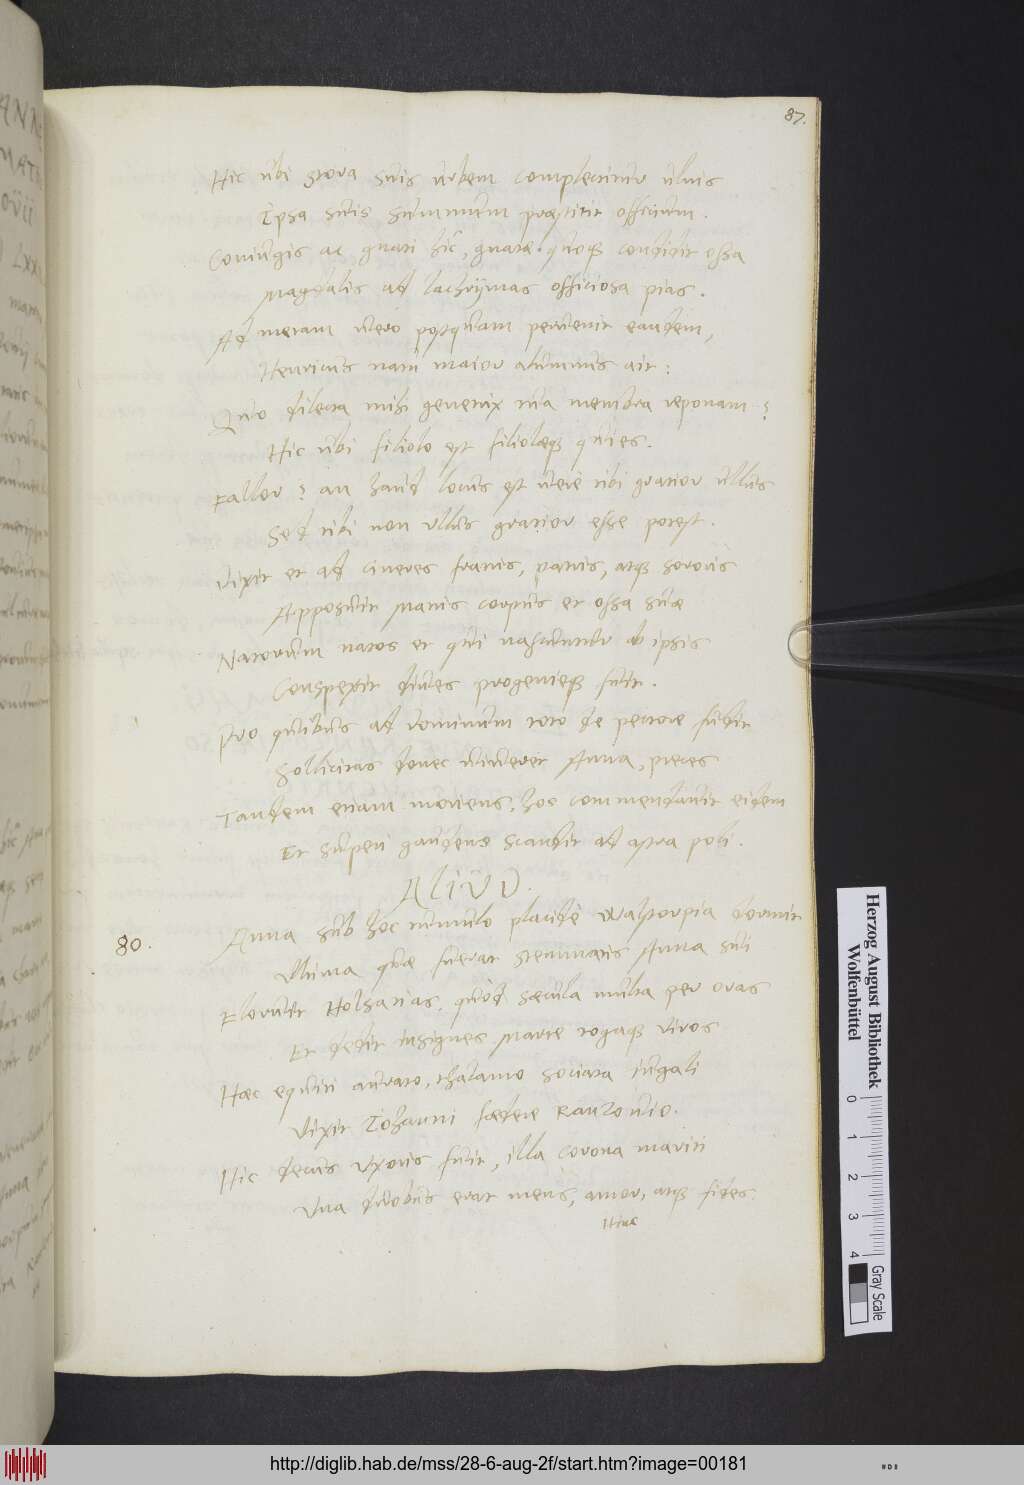 87.
Hic ubi Stora suis urbem complectitur ulnis
Ipsa suis summum præstitit officium.
Coniugis ac gnati hic, gnatæ quoq; condidit ossa
Magdalis ad lachrymas officiosa pias.
Ad metam uero postquam peruenit eandem,
Henricus nam maior alumnus ait:
Quo dilecta mihi genetrix tua membra reponam?
Hic ubi filiolo est filiolæq; quies.
Fallor? an haud locus est uere tibi gratior ullus
Sed tibi non ullus gratior esse potest.
Vixit et ad cineres fratris, patris, atq; sororis
Apposuit Matris corpus et ossa suæ
Natorum natos et qui nascuntur ab ipsis
Conspexit diues progenieq; fuit.
Pro quibus ad dominum toto de pectore fudit
Sollicitas donec uiueret Anna, preces
Tandem etiam moriens, hoc commendauit eidem
Et superi gaudens scandit ad astra poli.
ALIUD.
80.
Anna sub hoc tumulo placide Walstorpia dormit
Ultima quæ fuerat stemmatis Anna sui
Floruit Holsatias, quod sæcula multa per oras
Et dedit insignes Marte togaq; viros
Hæc equiti aurato, thalamo sociata iugali
Vixit Iohanni fædere Ranzouio.
Hic decus uxoris fuit, illa corona mariti
Una duobus erat mens, amor, atq; fides
Hinc
Herzog August Bibliothek
Wolfenbüttel
0 1 2 3 4
Gray Scale
http://diglib.hab.de/mss/28-6-aug-2f/start.htm?image=00181